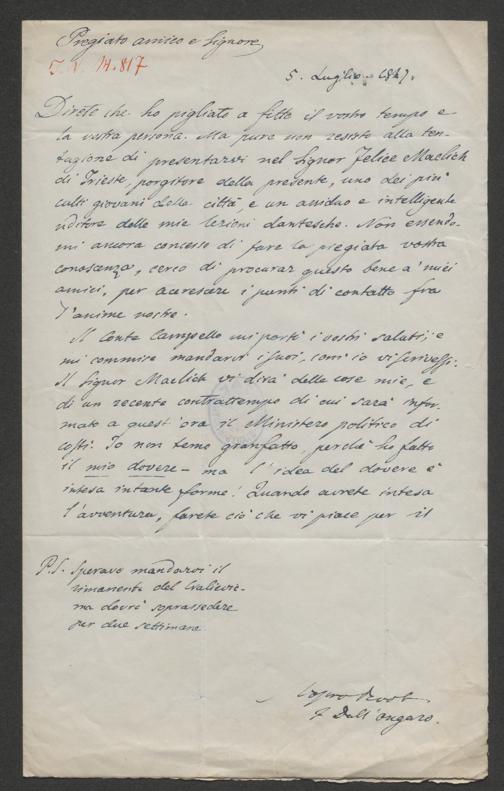 Pregiato amico e Signore,
I. N. 14.817
5. Luglio. 1847.
Direte che ho pigliato a fitto il vostro tempo e
la vostra persona. Ma pure non resisto alla ten-
tazione di presentarvi nel Signor Felice Machlich
di Trieste, porgitore della presente, uno dei più
culti giovani della città, e un assiduo e intelligente
uditore delle mie lezioni dantesche. Non essendo-
mi ancora concesso di fare la pregiata vostra
conoscenza, cerco di procurar questo bene a' miei
amici, per accrescere i punti di contatto fra
l'anime nostre.
Il Conte Campello mi portò i vostri saluti, e
mi commise mandarvi i suoi, com' io vi scrivessi.
Il Signor vi dirà delle cose mie, e
di un recente contrattempo di cui sarà infor-
mato a quest' ora il Ministero politico di
costì. Io non temo granfatto, perchè ho fatto
il mio dovere - ma l'idea del dovere è
intesa in tante forme! Quando avrete intesa
l'avventura, farete ciò che vi piace per il
P.S. Speravo mandarvi il
rimanente del -
ma dovrò soprassedere
per due settimane.
Vostro
F. Dall'Ongaro.